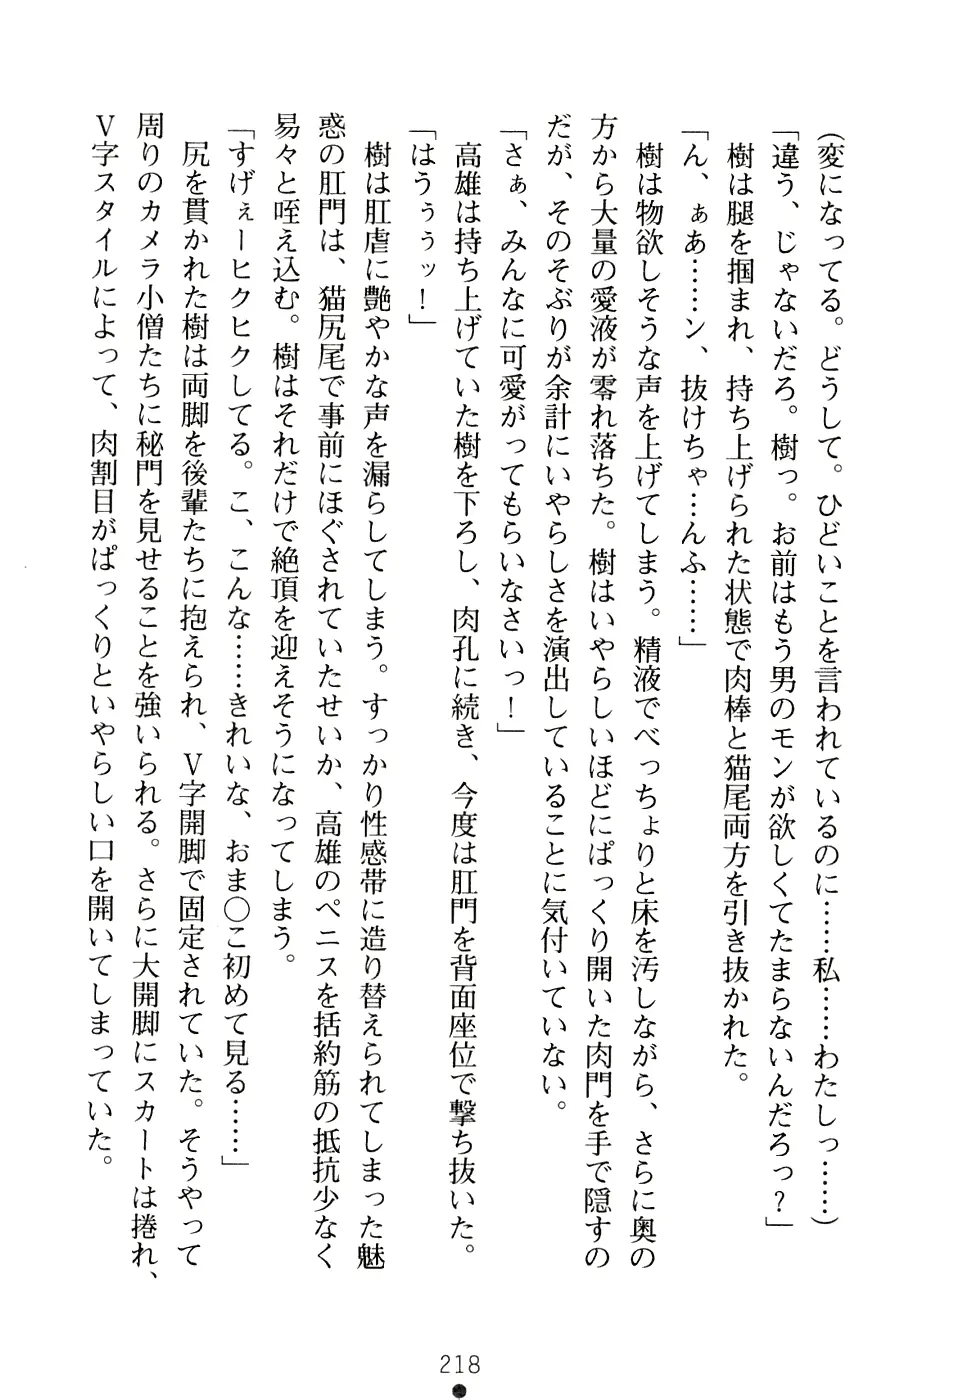 (変になってる。どうして。ひどいことを言われているのに……私……わたしっ……)
「違う、じゃないだろ。樹っ。お前はもう男のモンが欲しくてたまらないんだろっ?」
樹は腿を掴まれ、持ち上げられた状態で肉棒と猫尾両方を引き抜かれた。
「ん、ぁあ……ン、抜けちゃ…んふ……」
樹は物欲しそうな声を上げてしまう。精液でべっちょりと床を汚しながら、さらに奥の
方から大量の愛液が零れ落ちた。樹はいやらしいほどにぱっくり開いた肉門を手で隠すの
だが、そのそぶりが余計にいやらしさを演出していることに気付いていない。
「さぁ、みんなに可愛がってもらいなさいっ!」
高雄は持ち上げていた樹を下ろし、肉孔に続き、今度は肛門を背面座位で撃ち抜いた。
「はうぅぅッ!」
樹は肛虐に艶やかな声を漏らしてしまう。すっかり性感帯に造り替えられてしまった魅
惑の肛門は、猫尻尾で事前にほぐされていたせいか、高雄のペニスを括約筋の抵抗少なく
易々と咥え込む。樹はそれだけで絶頂を迎えそうになってしまう。
「すげぇーヒクヒクしてる。こ、こんな……きれいな、おま〇こ初めて見る……」
尻を貫かれた樹は両脚を後輩たちに抱えられ、V字開脚で固定されていた。そうやって
周りのカメラ小僧たちに秘門を見せることを強いられる。さらに大開脚にスカートは捲れ、
V字スタイルによって、肉割目がぱっくりといやらしい口を開いてしまっていた。
218